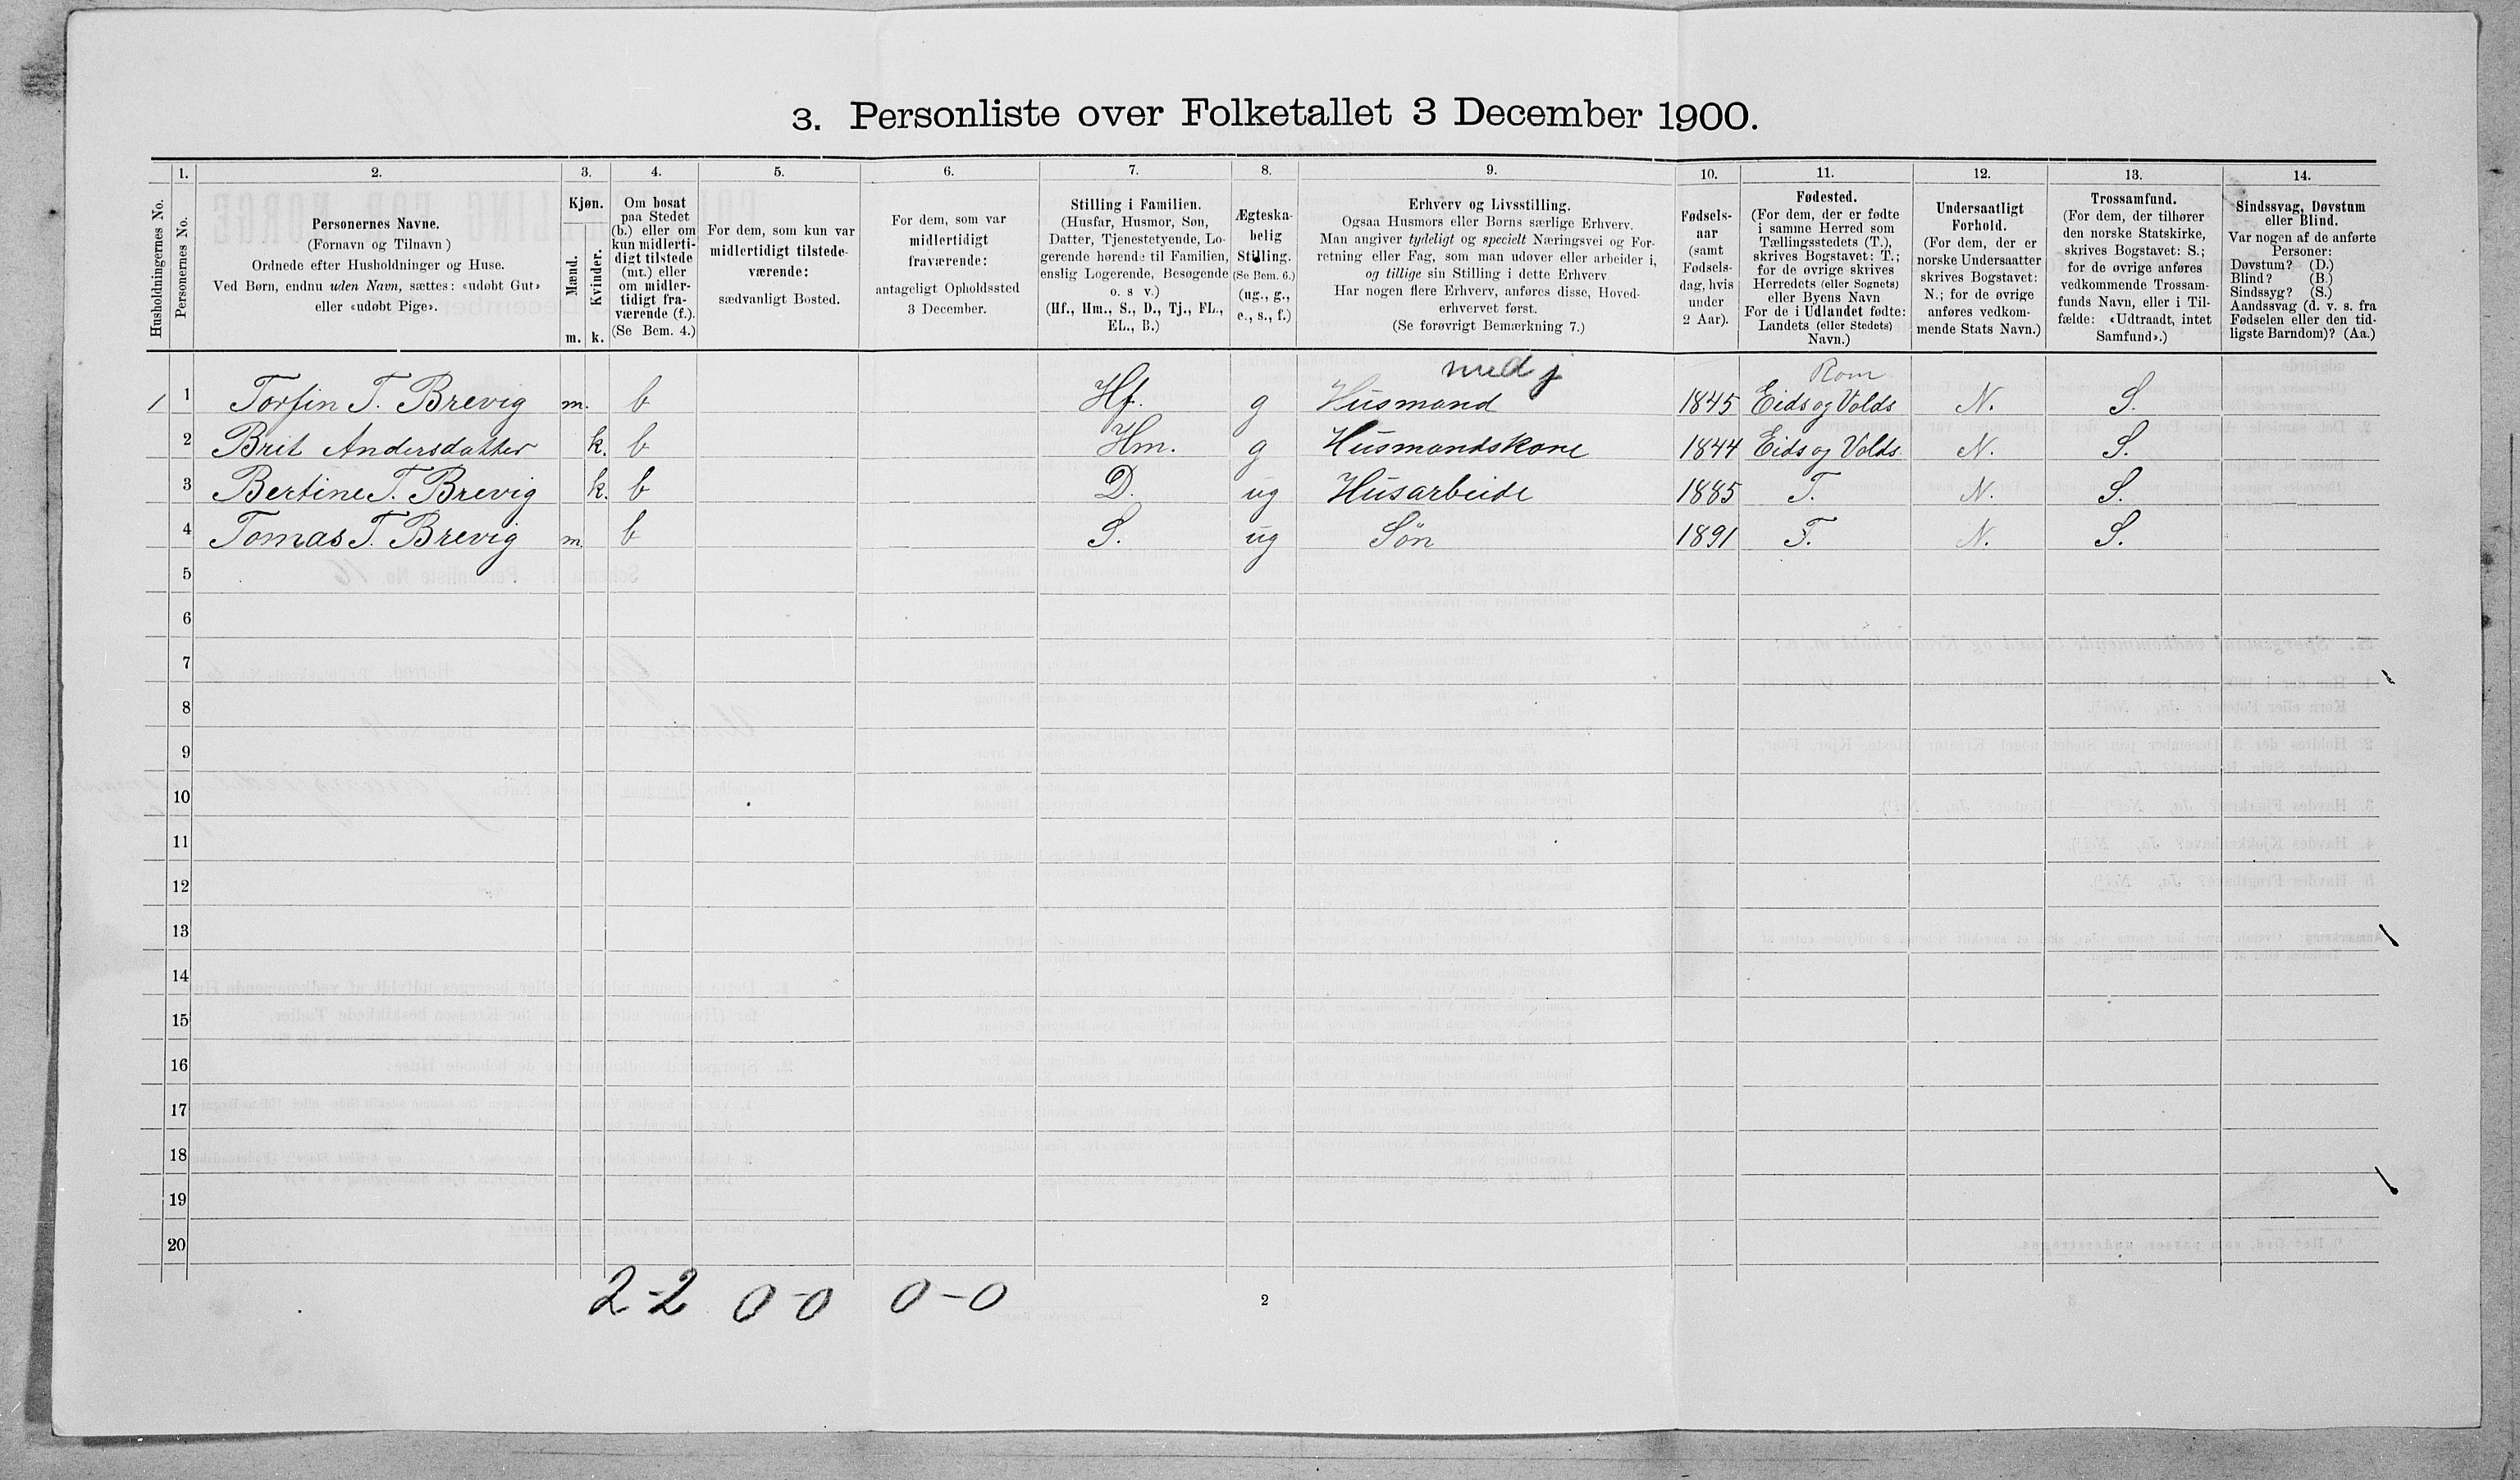 3. Personliste over Folketallet 3 December 1900.
Husholdningernes No.
1.
Personernes No.
2.
Personernes Navne.
(Fornavn og Tilnavn )
Ordnede efter Husholdninger og Huse.
Ved Børn, endnu uden Navn, sættes: «udøbt Gut»
eller «udøbt Pige».
3.
Kjøn.
Mænd.
Kvinder.
m.
k.
4.
Om bosat
paa Stedet
(b.) eller om
kun midlerti-
digt tilstede
(mt.) eller
om midler-
tidigt fra-
værende (f.).
(Se Bem. 4.)
5.
For dem, som kun var
midlertidigt tilstede-
værende:
sædvanligt Bosted.
6.
For dem, som var
midlertidigt
fraværende:
antageligt Opholdssted
3 December.
7.
Stilling i Familien.
(Husfar, Husmor, Søn,
Datter, Tjenestetyende, Lo-
gerende hørende til Familien,
enslig Logerende, Besøgende
o. s v.)
(Hf., Hm., S., D., Tj., FL.,
EL., B.)
8.
Ægteska-
belig
Stilling.
(Se Bem. 6.)
(ug., g.,
e., s., f.)
9.
Erhverv og Livsstilling.
Ogsaa Husmors eller Børns særlige Erhverv.
Man angiver tydeligt og specielt Næringsvei og For-
retning eller Fag, som man udøver eller arbeider i,
og tillige sin Stilling i dette Erhverv
Har nogen flere Erhverv, anføres disse, Hoved-
erhvervet først.
(Se forøvrigt Bemærkning 7.)
10.
Fødsels-
aar
(samt
Fødsels-
dag, hvis
under
2 Aar).
11.
Fødested.
(For dem, der er fødte
i samme Herred som
Tællingsstedets (T.),
skrives Bogstavet: T.;
for de øvrige skrives
Herredets (eller Sognets)
eller Byens Navn
For de i Udlandet fødte:
Landets (eller Stedets)
Navn.)
12.
Undersaatligt
Forhold.
(For dem, der er
norske Undersaatter
skrives Bogstavet:
N.; for de øvrige
anføres vedkom-
mende Stats Navn.)
13.
Trossamfund.
(For dem, der tilhører
den norske Statskirke,
skrives Bogstavet: S.;
for de øvrige anføres
vedkommende Trossam-
funds Navn, eller i Til-
fælde: «Udtraadt, intet
Samfund».)
14.
Sindssvag, Døvstum
eller Blind.
Var nogen af de anførte
Personer:
Døvstum? (D.)
Blind? (B.)
Sindssyg? (S.)
Aandssvag (d. v. s. fra
Fødselen eller den tid-
ligste Barndom)? (Aa.)
med j
Rom
1 1 Torfin T. Brevig m. b Hf. g Husmand 1845 Eids og Volds N. S.
2 Brit Andersdatter k. b Hm. g Husmandskone 1844 Eids og Volds N. S.
3 Bertine T. Brevig k. b D. ug Husarbeide 1885 T. N. S.
4 Tomas T. Brevig m. b S. ug Søn 1891 T. N. S.
5
6
7
8
9
10
11
12
13
14
15
16
17
18
19
20
2-2 0-0 0-0
2